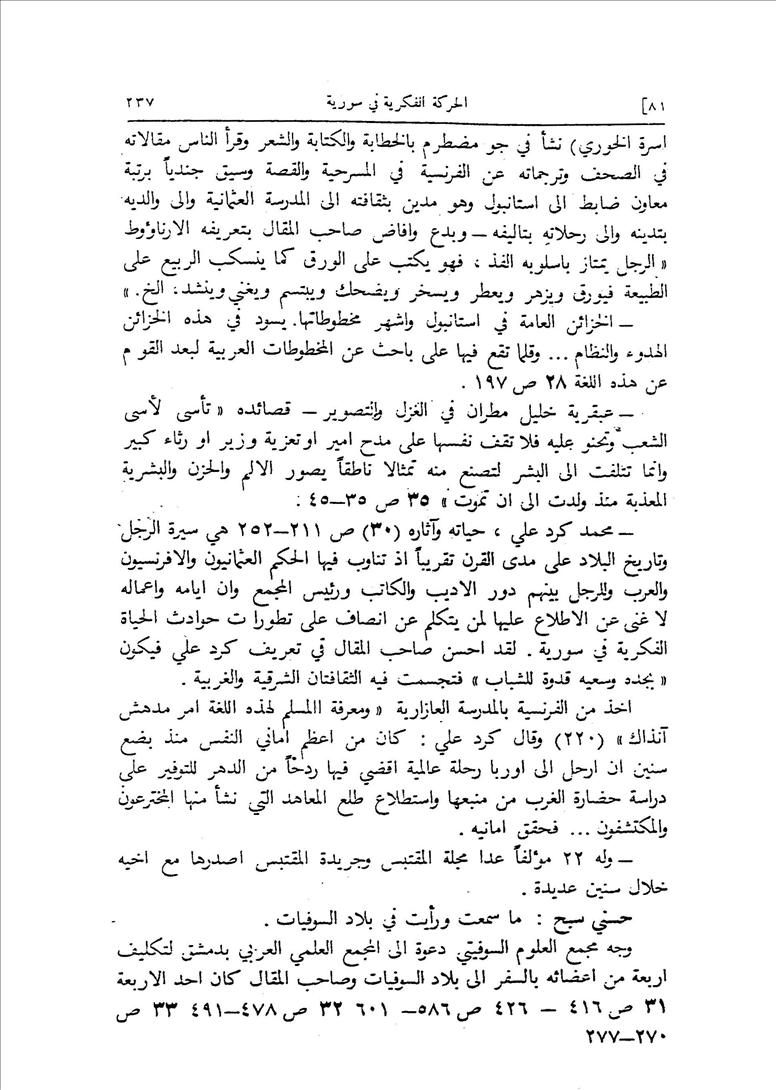 ٨١] الحركة الفكرية في سورية ٢٣٧
اسرة الخوري) نشأ في جو مضطرم بالخطابة والكتابة والشعر وقرأ الناس مقالاته
في الصحف وترجماته عن الفرنسية في المسرحية والقصة وسيق جندياً برتبة
معاون ضابط الى استانبول وهو مدين بثقافته الى المدرسة العثمانية والى والديه
بتدينه والى رحلاته بتاليفه – وبدع وافاض صاحب المقال بتعريفه الارناؤوط
« الرجل يمتاز باسلوبه الفذ ، فهو يكتب على الورق كما ينسكب الربيع على
الطبيعة فيورق ويزهر ويعطر ويسخر ويضحك ويبتسم ويغني وينشد، الخ. »
– الخزائن العامة في استانبول واشهر مخطوطاتها. يسود في هذه الخزائن
الهدوء والنظام ... وقلما تقع فيها على باحث عن المخطوطات العربية لبعد القو م
عن هذه اللغة ٢٨ ص ١٩٧ .
– عبقرية خليل مطران في الغزل والتصوير – قصائده « تأسى لأسى
الشعب وتحنو عليه فلا تقف نفسها على مدح امير او تعزية وزير او رثاء كبير
وانما تتلفت الى البشر لتصنع منه تمثالا ناطقاً يصور الالم والحزن والبشرية
المعذبة منذ ولدت الى ان تموت » ٣٥ ص ٣٥–٤٥ :
– محمد كرد علي ، حياته وآثاره (٣٠) ص ٢١١–٢٥٢ هي سيرة الرجل
وتاريخ البلاد على مدى القرن تقريباً اذ تناوب فيها الحكم العثمانيون والافرنسيون
والعرب وللرجل بينهم دور الاديب والكاتب ورئيس المجمع وان ايامه واعماله
لا غنى عن الاطلاع عليها لمن يتكلم عن انصاف على تطورا ت حوادث الحياة
الفكرية في سورية . لقد احسن صاحب المقال في تعريف كرد علي فيكون
« بجده وسعيه قدوة للشباب » فتجسمت فيه الثقافتان الشرقية والغربية .
اخذ من الفرنسية بالمدرسة العازارية « ومعرفة االمسلم لهذه اللغة امر مدهش
آنذاك » (٢٢٠) وقال كرد علي : كان من اعظم اماني النفس منذ بضع
سنين ان ارحل الى اوربا رحلة عالمية اقضي فيها ردخاً من الدهر للتوفير على
دراسة حضارة الغرب من منبعها واستطلاع طلع المعاهد التي نشأ منها المخترعون
والمكتشفون ... فحقق امانيه .
– وله ٢٢ مؤلفاً عدا مجلة المقتبس وجريدة المقتبس اصدرها مع اخيه
خلال سنين عديدة .
حسني سبح : ما سمعت ورأيت في بلاد السوفيات .
وجه مجمع العلوم السوفيتي دعوة الى المجمع العلمي العربي بدمشق لتكليف
اربعة من اعضائه بالسفر الى بلاد السوفيات وصاحب المقال كان احد الاربعة
٣١ ص ٤١٦ – ٤٢٦ ص ٥٨٦– ٦٠١ ٣٢ ص ٤٧٨–٤٩١ ٣٣ ص
٢٧٠–٢٧٧